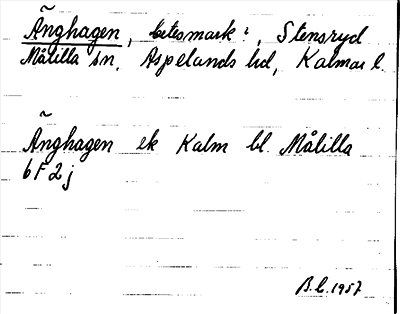 Ãnghagen, betesmark?, Stensryd
Målilla sn, Aspelands hd, Kalmar l.
Ãnghagen ek Kalm bl. Målilla
6F2j
B.L.1957